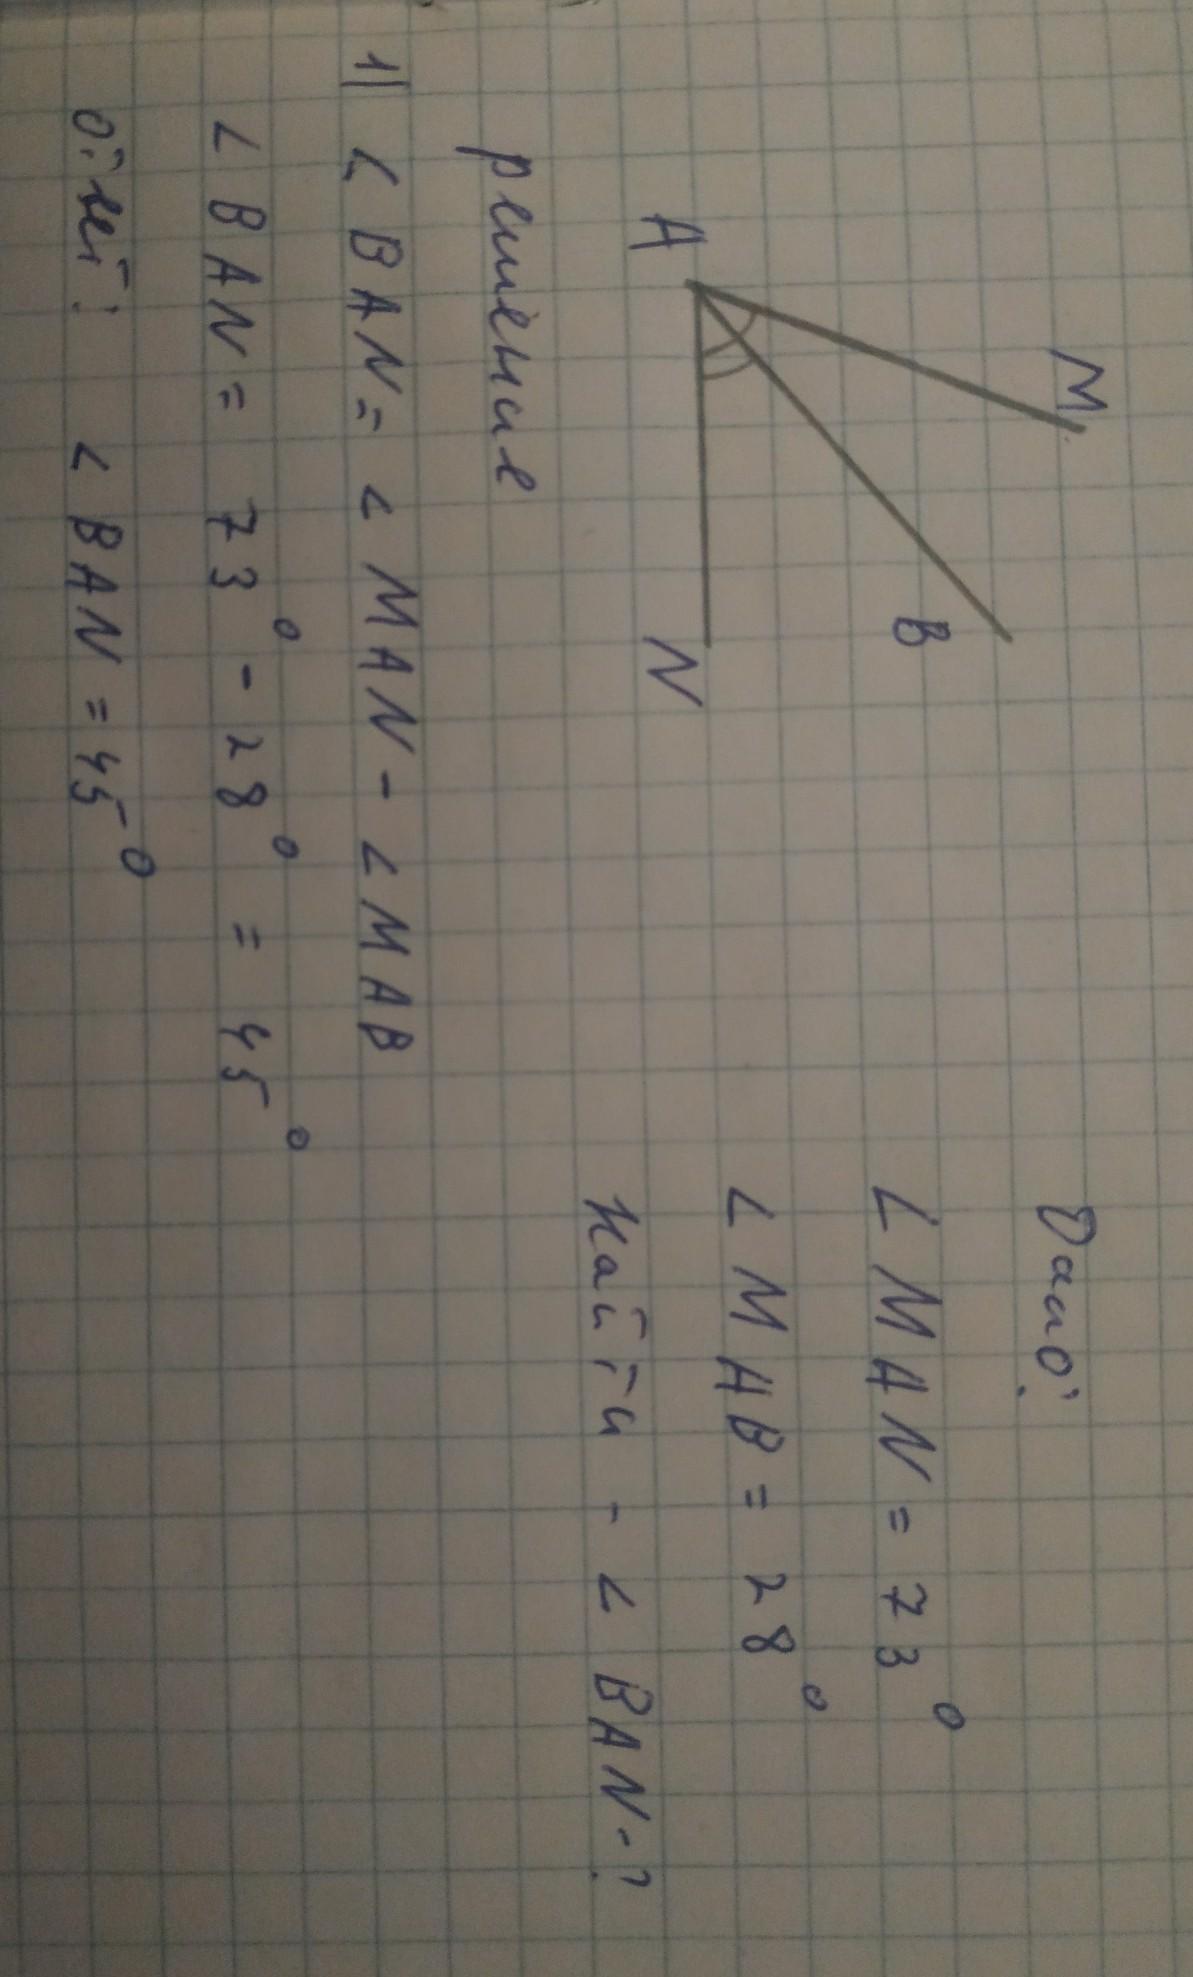 M
B
A
N
Дано:
∠ MAN = 73°
∠ MAB = 28°
Найти - ∠ BAN-?
решение
1) ∠ BAN = ∠ MAN - ∠ MAB
∠ BAN = 73° - 28° = 45°
Ответ: ∠ BAN = 45°